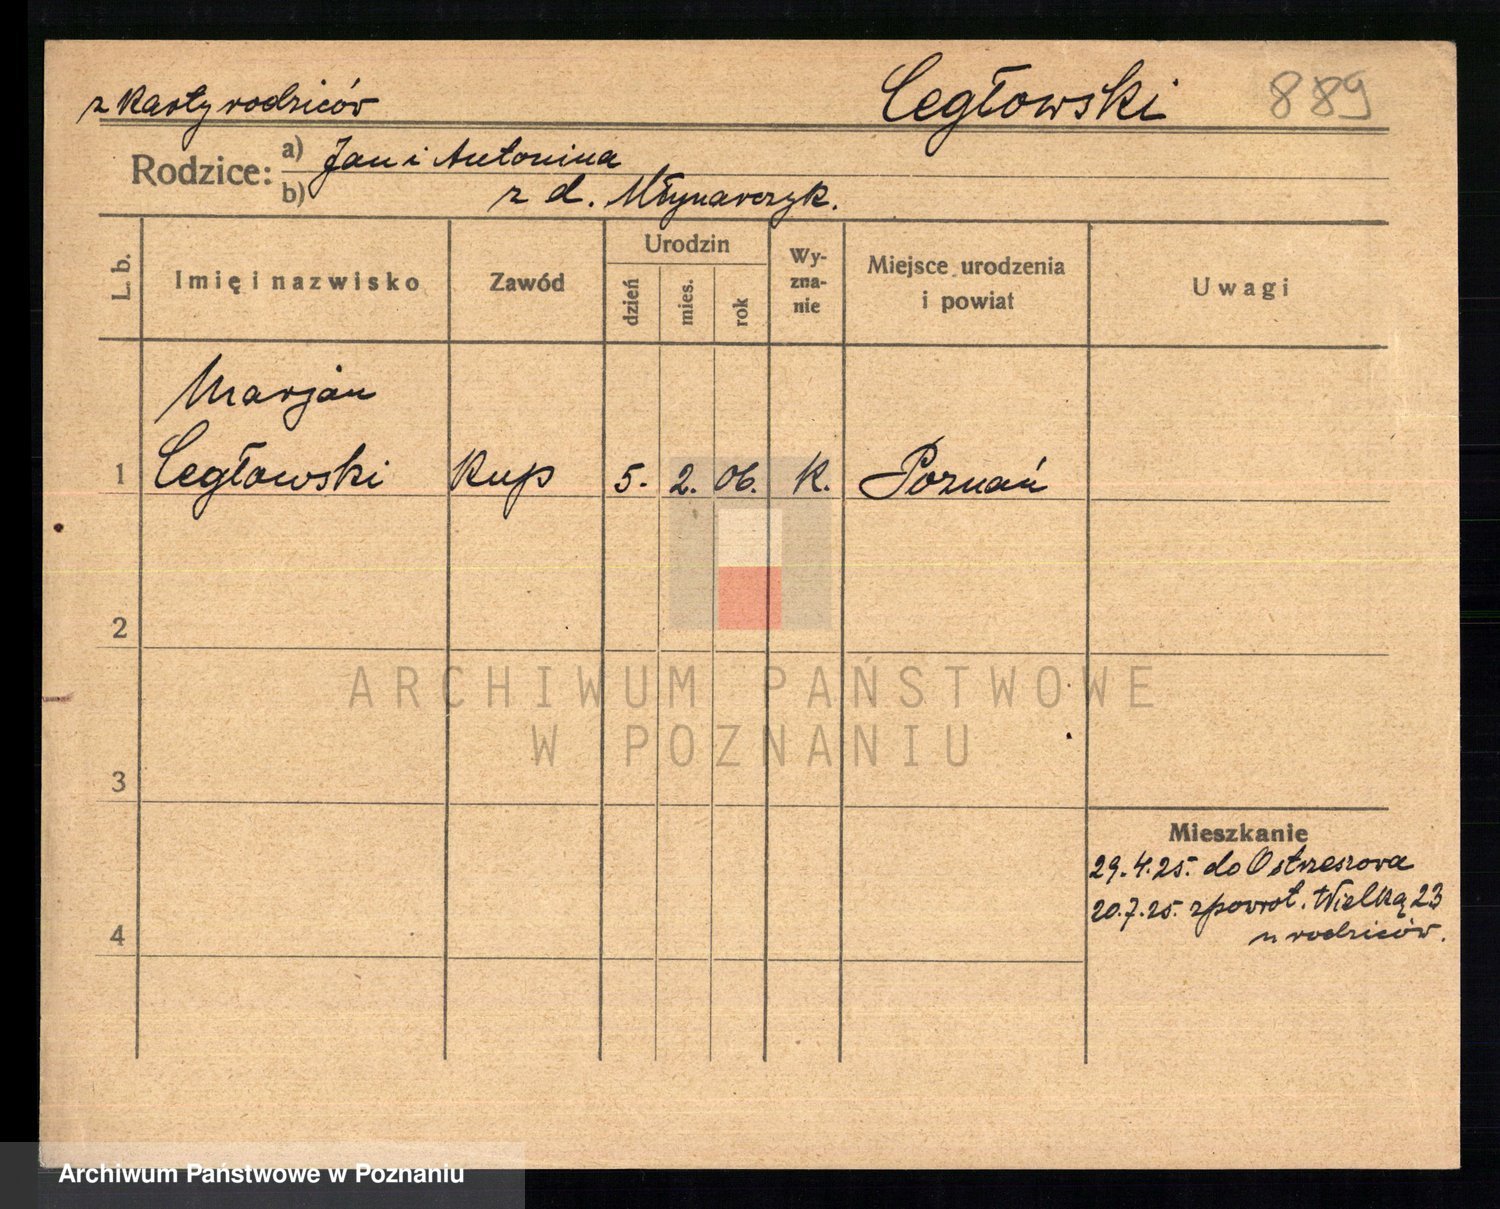 z karty rodziców
Cegłowski
889
Rodzice:
a) Jan i Antonina
b) z d. Młynarczyk.
L. b.
Imię i nazwisko
Zawód
Urodzin
dzień
mies.
rok
Wy-
zna-
nie
Miejsce urodzenia
i powiat
Uwagi
Marjan
1 Cegłowski kup 5. 2. 06. k. Poznań
2
3
4
Mieszkanie
29.4.25. do Ostrzeszowa
20.7.25. zpowrot. Wielka 23
u rodziców.
ARCHIWUM PAŃSTWOWE
W POZNANIU
Archiwum Państwowe w Poznaniu